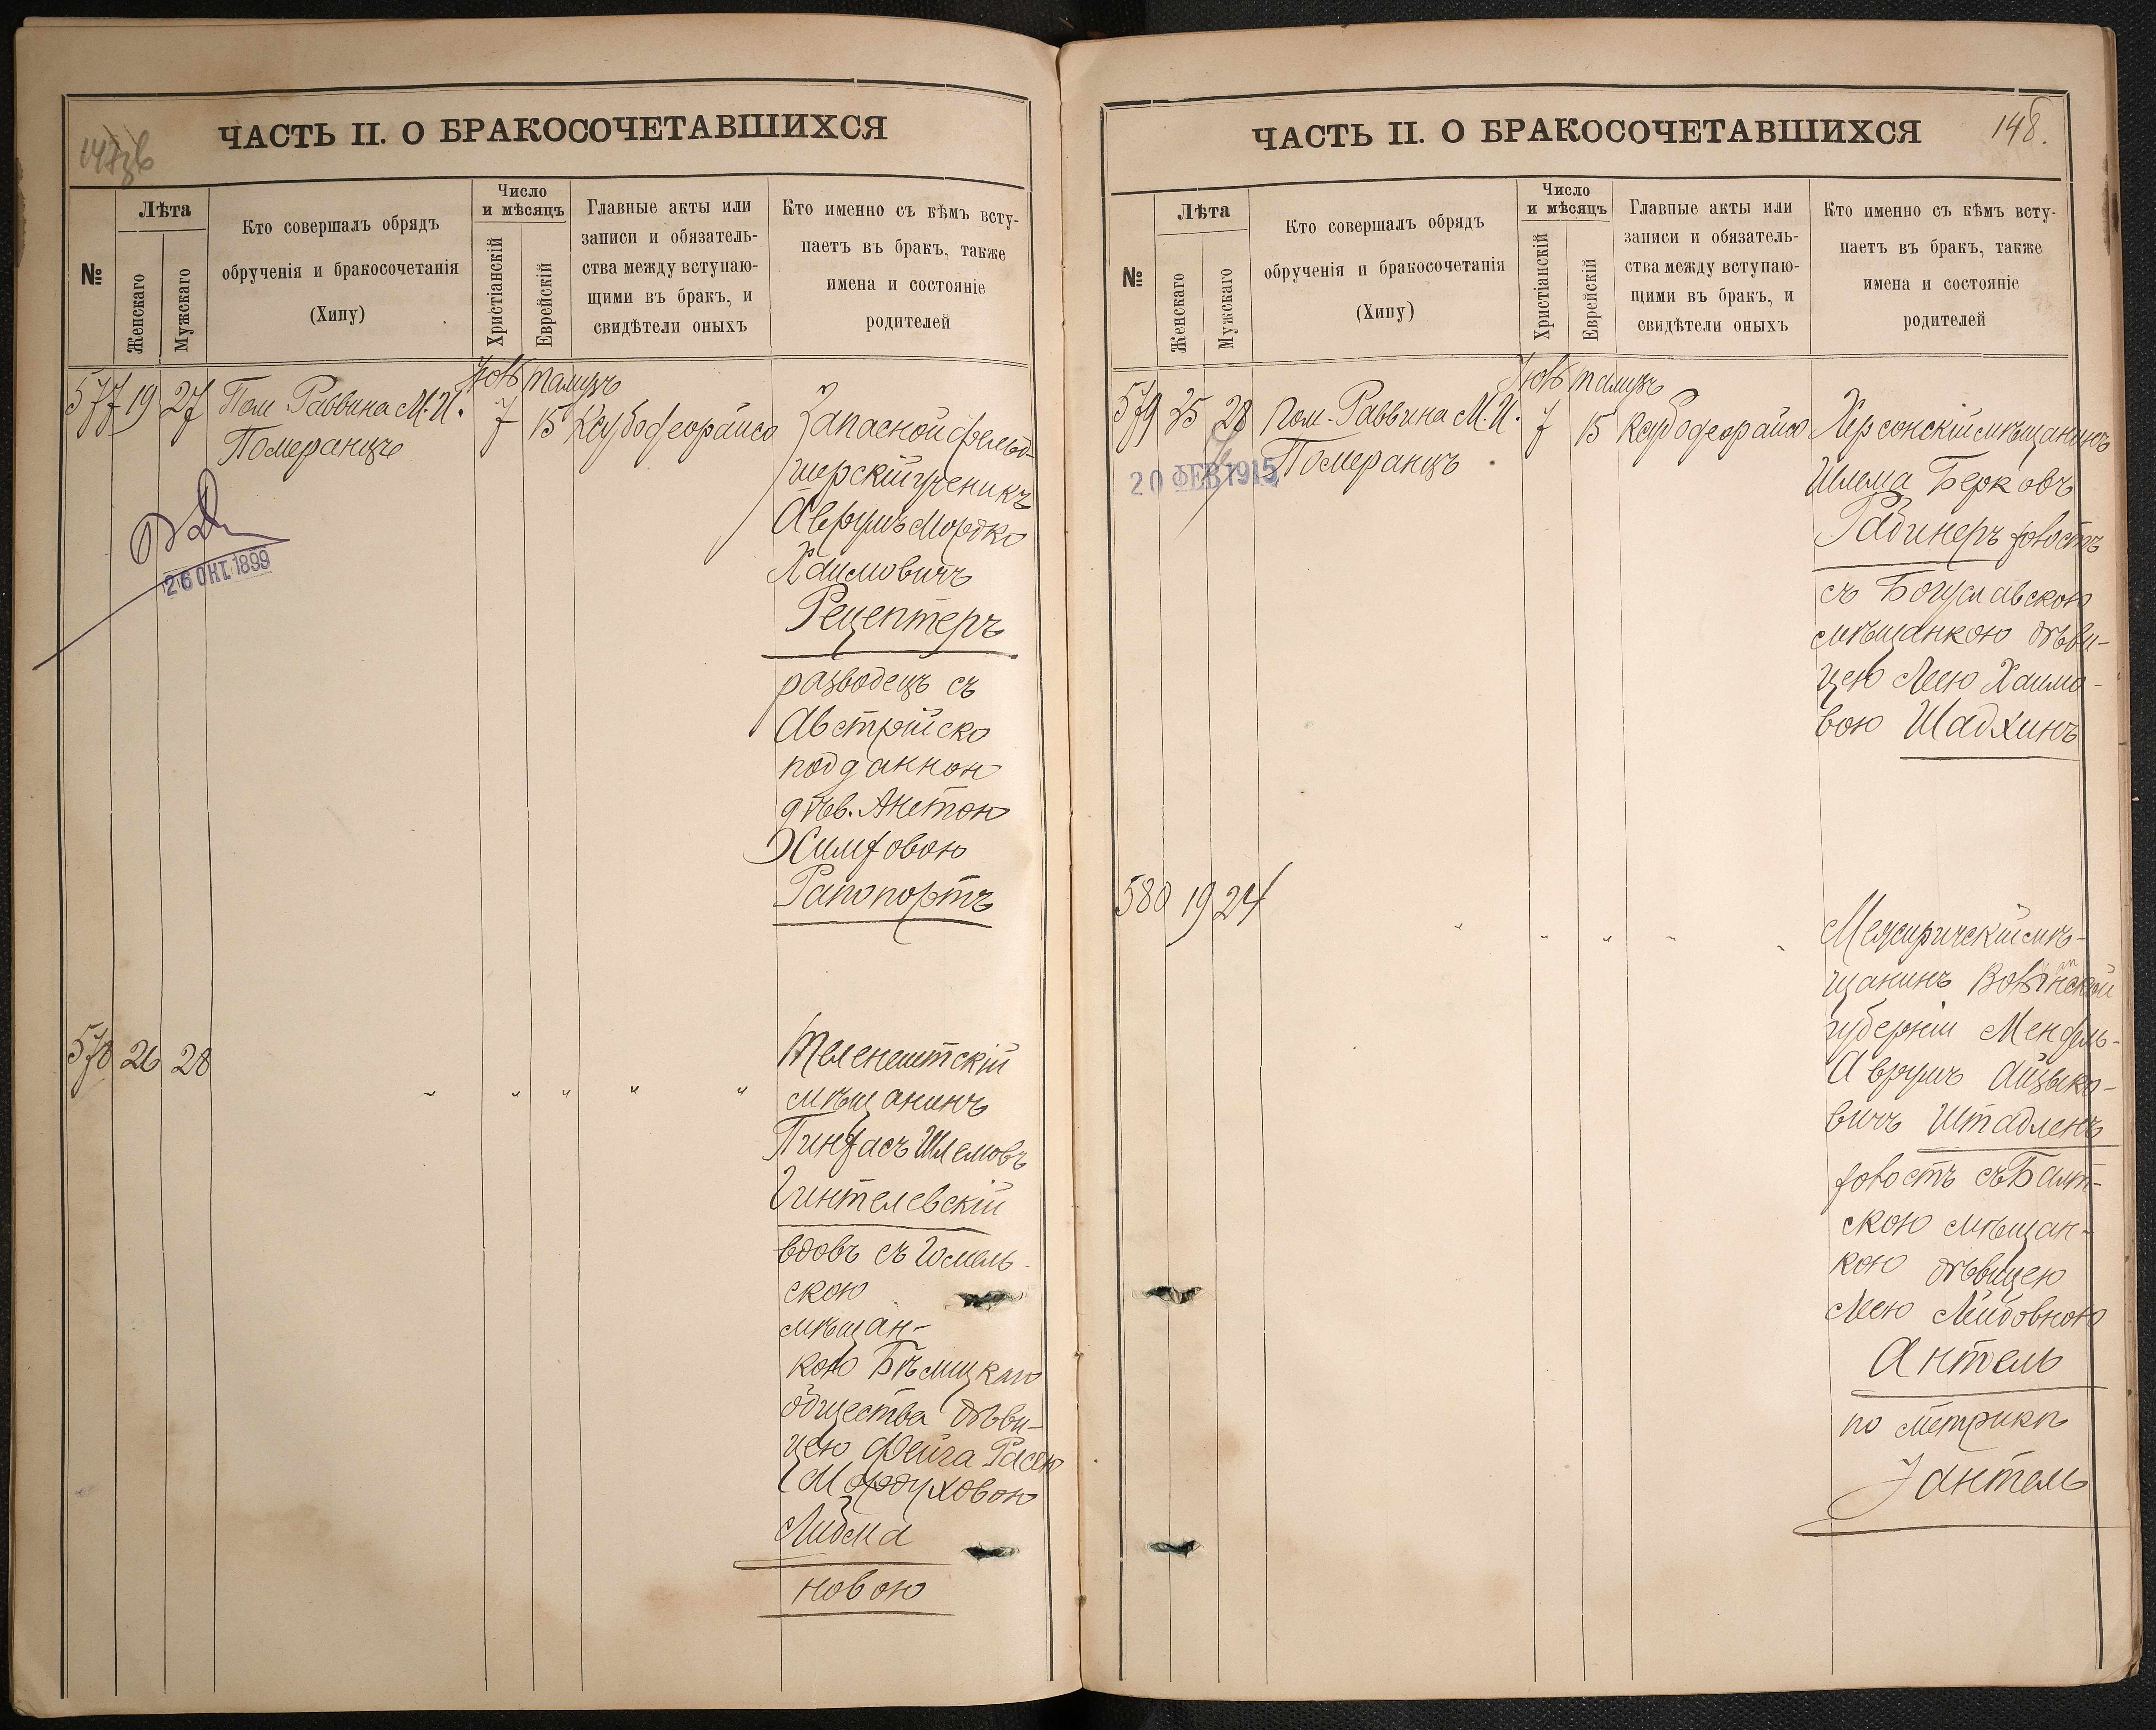 ЧАСТЬ II. О БРАКОСОЧЕТАВШИХСЯ
№
Лѣта
Женскаго
Мужскаго
Кто совершалъ обрядъ
обрученія и бракосочетанія
(Хипу)
Число
и мѣсяцъ
Христіанскій
Еврейскій
Главные акты или
записи и обязатель-
ства между вступаю-
щими въ бракъ, и
свидѣтели оныхъ
Кто именно съ кѣмъ всту-
паетъ въ бракъ, также
имена и состояніе
родителей
577 19 27 Пом. Раввина М. И.
Померанцъ
тамузъ
7 15
Запасной фельд-
шерскій ученикъ
Аврумъ Мордко
Хаимовичъ
Рецептеръ
разводецъ съ
Австрійско
подданною
дѣв. Анетою
Рапопортъ
26 ОКТ. 1899
578 26 28 " " " " "
Теленештскій
мѣщанинъ
Пинхасъ Шлемовъ
Гинтелевскій
вдовъ съ Гомель-
скою
мѣщан-
кою Бѣлицкаго
общества дѣви-
цею Фейга Расею
Мордуховою
Либма
новою
ЧАСТЬ II. О БРАКОСОЧЕТАВШИХСЯ
148.
№
Лѣта
Женскаго
Мужскаго
Кто совершалъ обрядъ
обрученія и бракосочетанія
(Хипу)
Число
и мѣсяцъ
Христіанскій
Еврейскій
Главные акты или
записи и обязатель-
ства между вступаю-
щими въ бракъ, и
свидѣтели оныхъ
Кто именно съ кѣмъ всту-
паетъ въ бракъ, также
имена и состояніе
родителей
579 25 28 Пом. Раввина М. И.
Померанцъ
тамузъ
7 15
Херсонскій мѣщанинъ
Шлема Берковъ
Рабинеръ холостъ
съ Богуславскою
мѣщанкою дѣви-
цею Леею Хаимо-
вою Шадхинъ
20 ФЕВ 1915
580 19 24 " " " " "
Межиричскій мѣ-
щанинъ Волынской
губерніи Мендель-
Аврумъ Айзыко-
вичъ Штадленъ
холостъ съ Балт-
скою мѣщан-
кою дѣвицею
Леею Лейбовною
Антель
по метрикѣ
Зантель